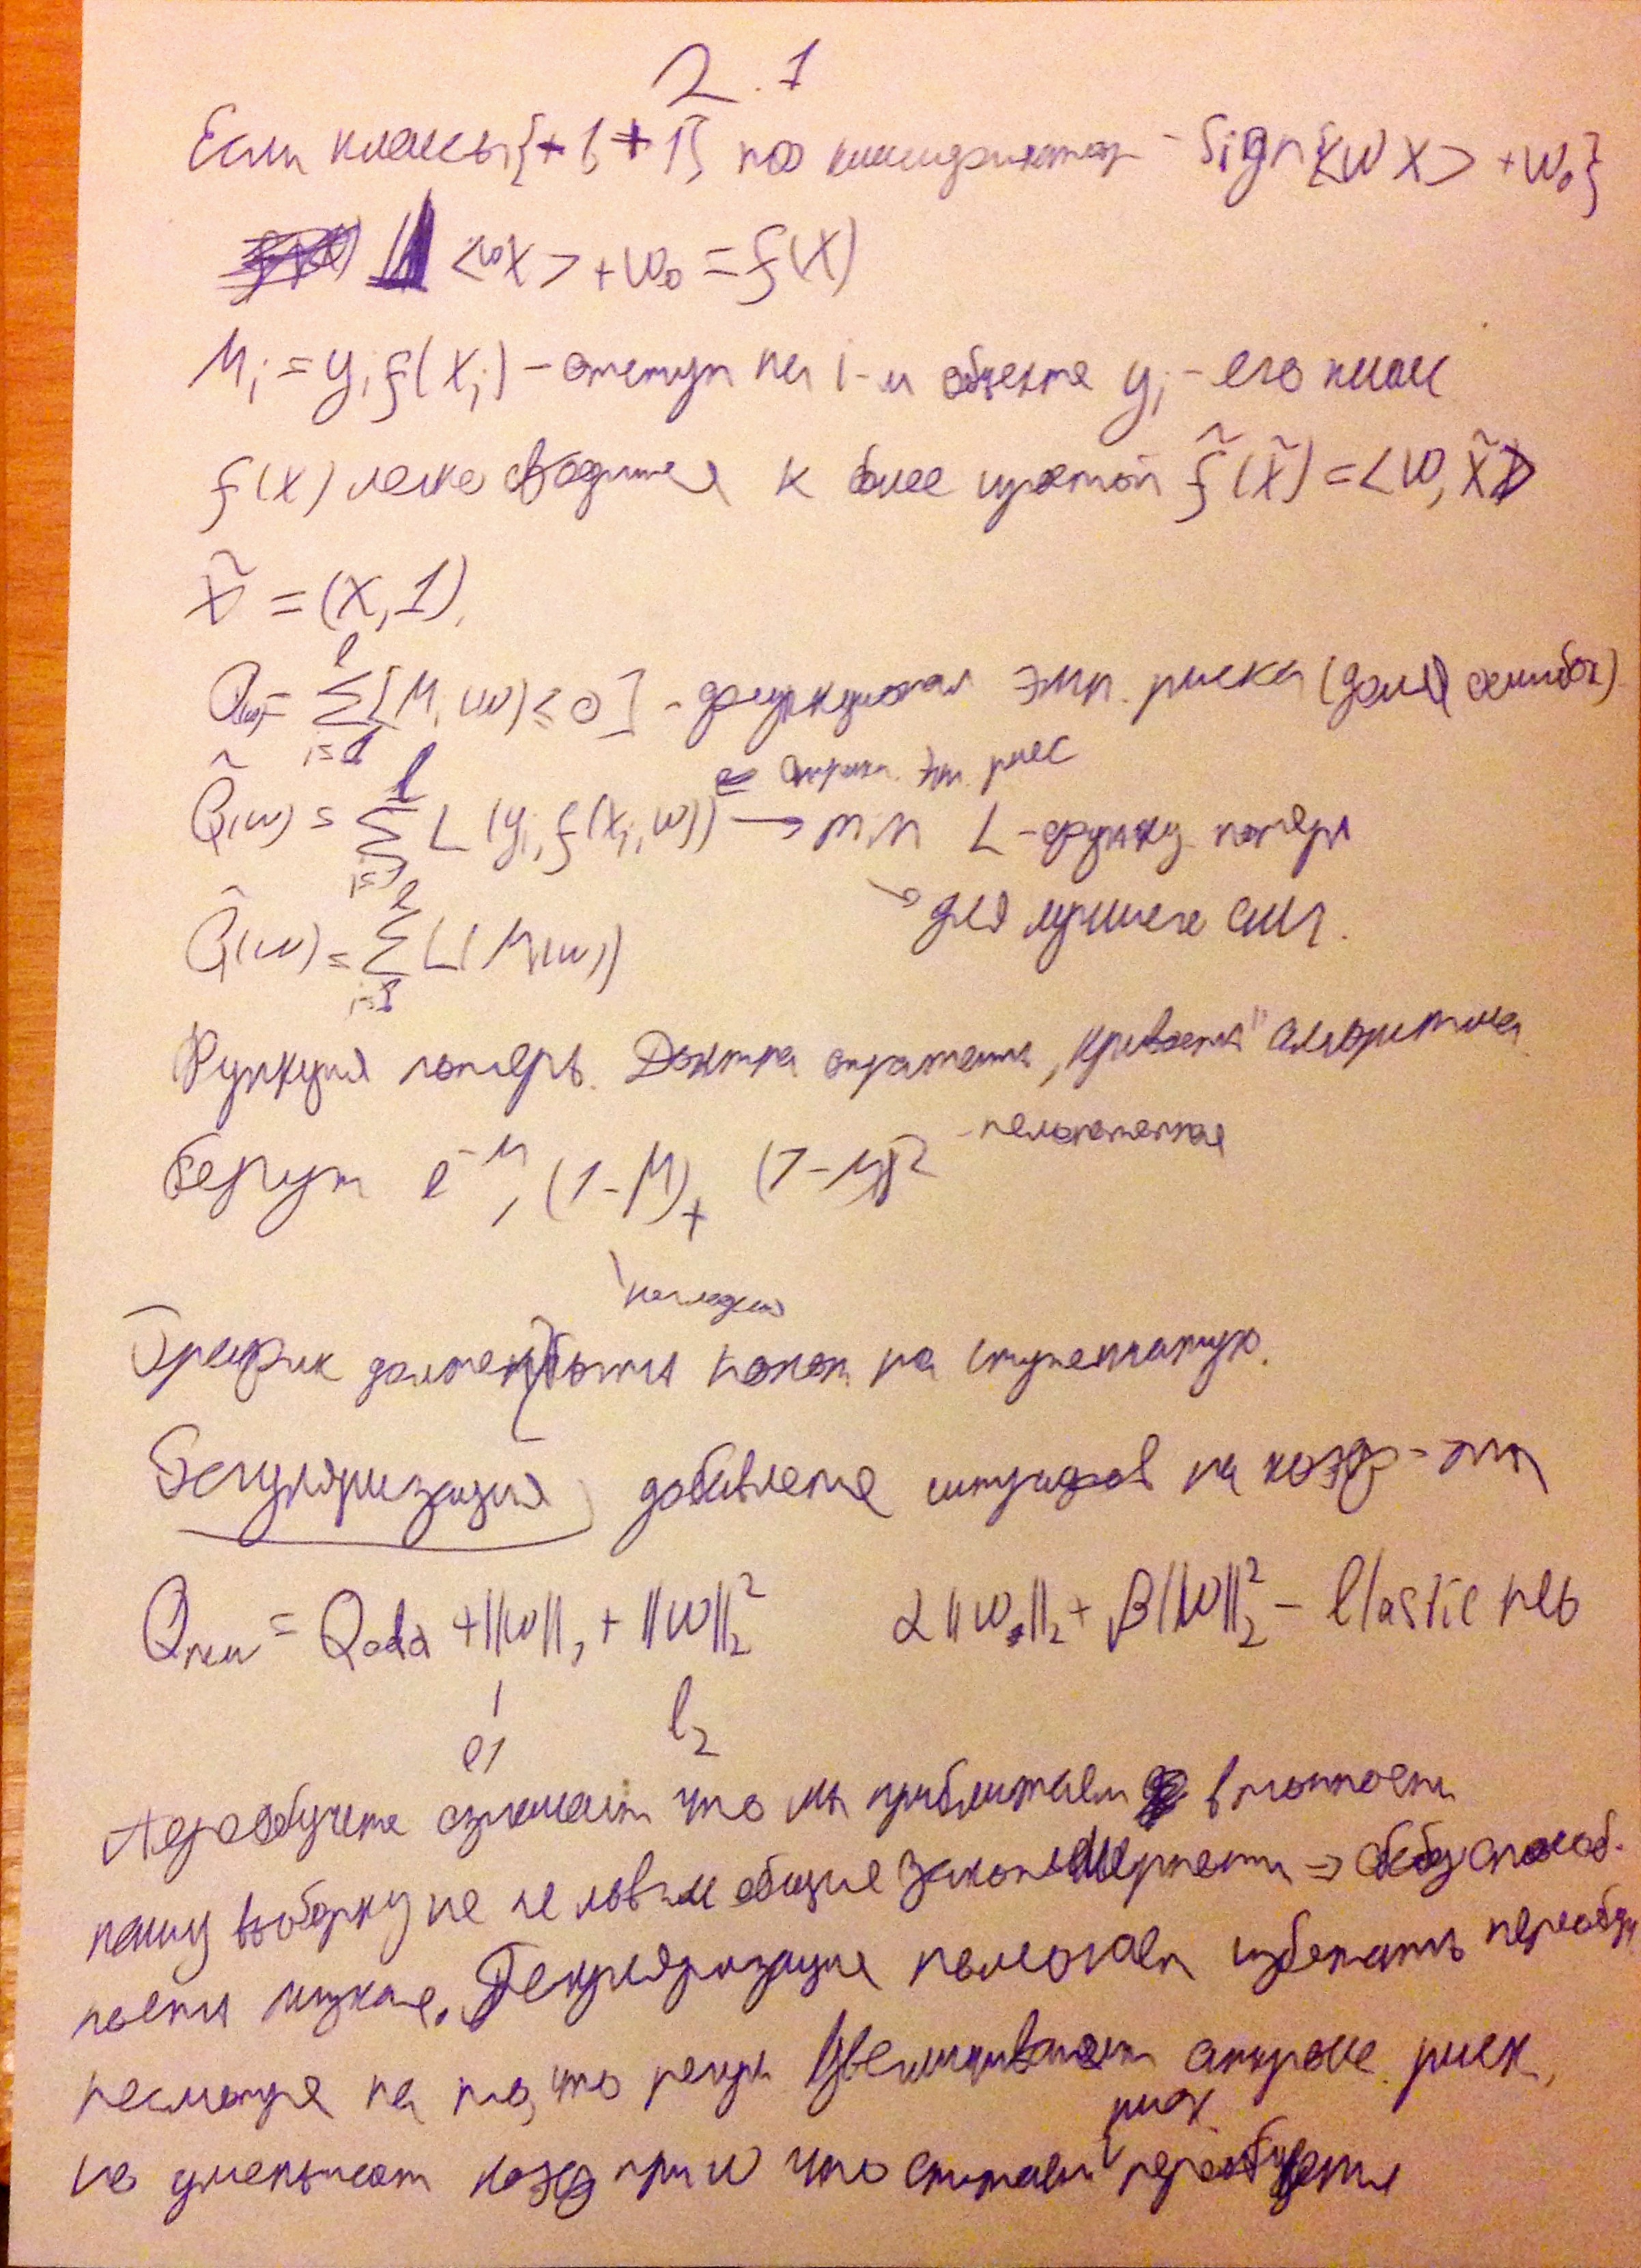 2.1
Если классы {-1 +1} классификатор - Sign{<w x> + w₀}
<w x> + w₀ = f(x)
M_i = y_i f(x_i) - отступ на i-м объекте y_i - его класс
f(x) легко сводится к более простой f̃(x̃) = <w, x̃>
x̃ = (x, 1)
Q(w) = Σ_{i=1}^{l} [M_i(w) ≤ 0] - функционал эмп. риска (доля ошибок)
эмп. риск
Q̃(w) = Σ_{i=1}^{l} L(y_i, f(x_i, w)) → min L - функц потерь
→ для лучшего
Q̃(w) = Σ_{i=1}^{l} L(M_i(w))
Функция потерь. Должна отражать "кривость" алгоритма
Берут e^{-M}, (1-M)₊ (1-M)²
График должен быть похож на ступенчатую.
Регуляризация добавление штрафов на коэф-ты
Q_new = Q_old + ||w||₁ + ||w||₂² α||w||₂ + β||w||₂² - Elastic net
l1 l₂
Переобучение означает что мы приближаем в точности
нашу выборку не ловим общие закономерности ⇒ способ-
ность низкая. Регуляризация помогает избежать переобуч
несмотря на то, что регул. увеличивает риск,
но уменьшает коэф при w что снижает риск переобучения